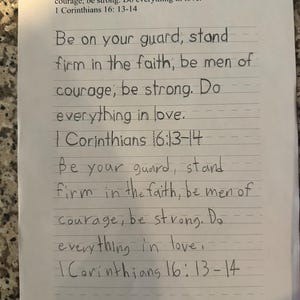 courage, be strong. Do everything in love.
1 Corinthians 16: 13-14
Be on your guard, stand
firm in the faith, be men of
courage, be strong. Do
everything in love.
1 Corinthians 16:13-14
Be your guard, stand
firm in the faith, be men of
courage, be strong. Do
everything in love.
1 Corinthians 16: 13-14